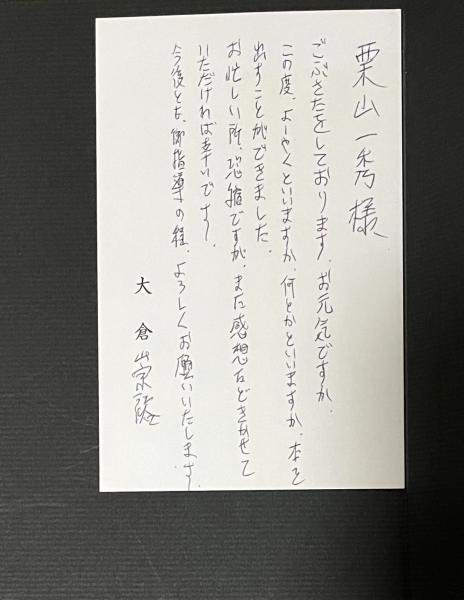 栗山一秀様
ごぶさたをしております。お元気ですか。
この度、ようやくといいますか、何とかといいますか、本を
出すことができました。
お忙しい所、恐縮ですが、また感想などきかせて
いただければ幸いです。
今後とも、御指導の程、よろしくお願いいたします。
大倉崇裕